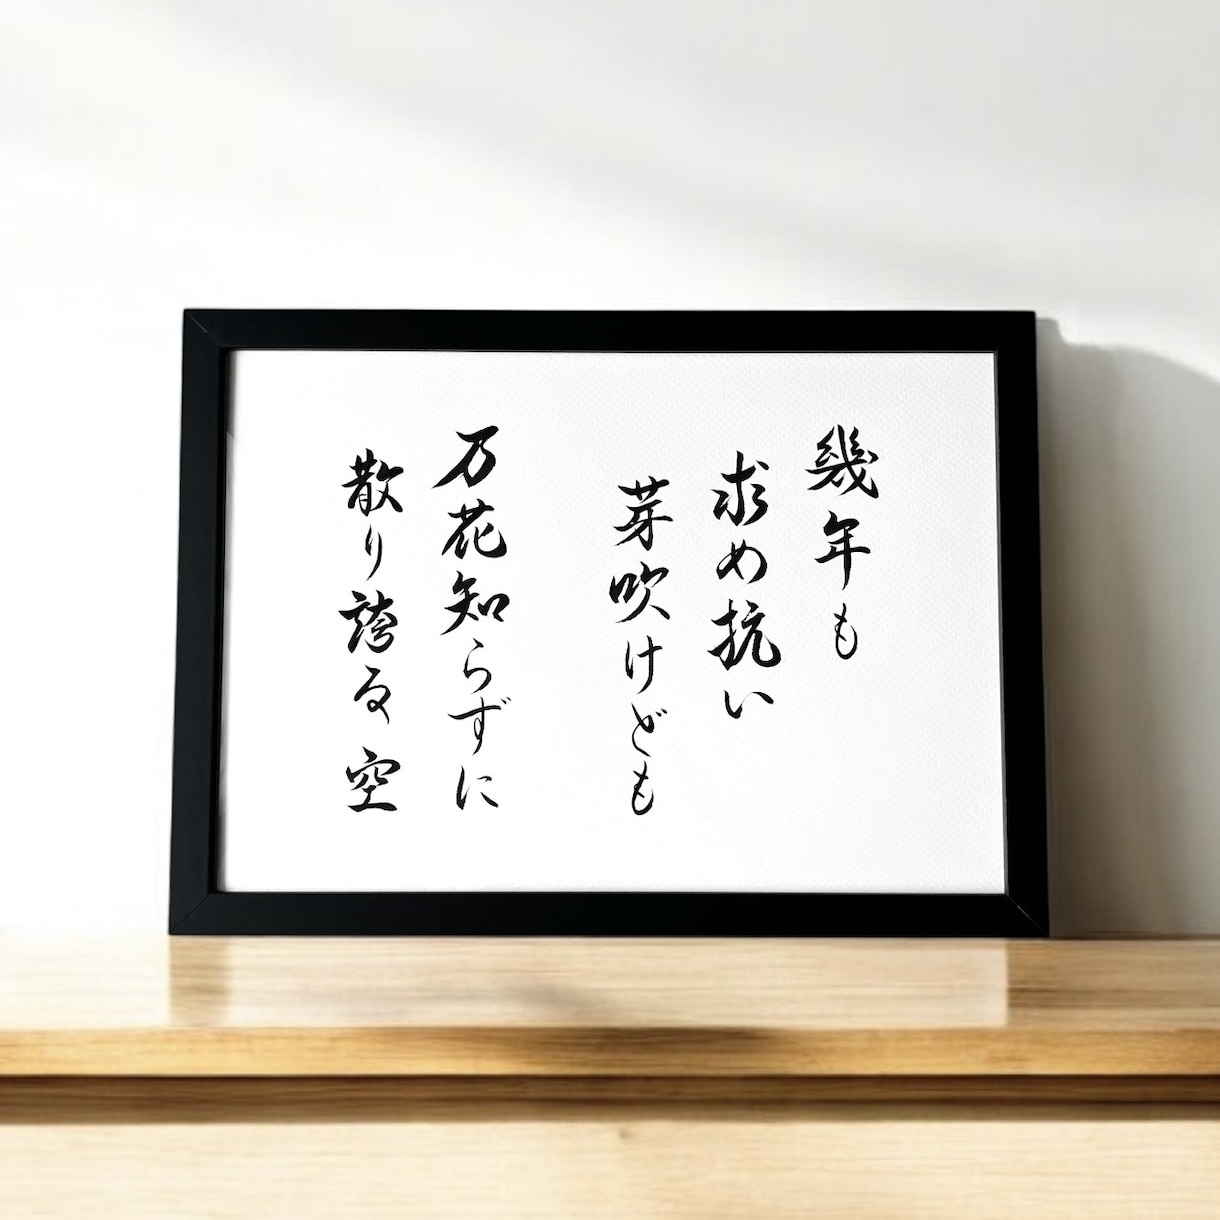 幾年も
求め抗い
芽吹けども
万花知らずに
散り誇る空